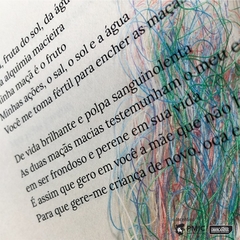 , fruta do sol, da água
alquimia macieira
inha maçã é o fruto
Minhas ações, o sal, o sol e a água
Você me toma fértil para encher as maçã
De vida brilhante e polpa sanguinolenta
As duas maçãs macias testemunham o meu e
em ser frondoso e perene em sua vida
É assim que gero em você a mãe que não h
Para que gere-me criança de novo, oca e